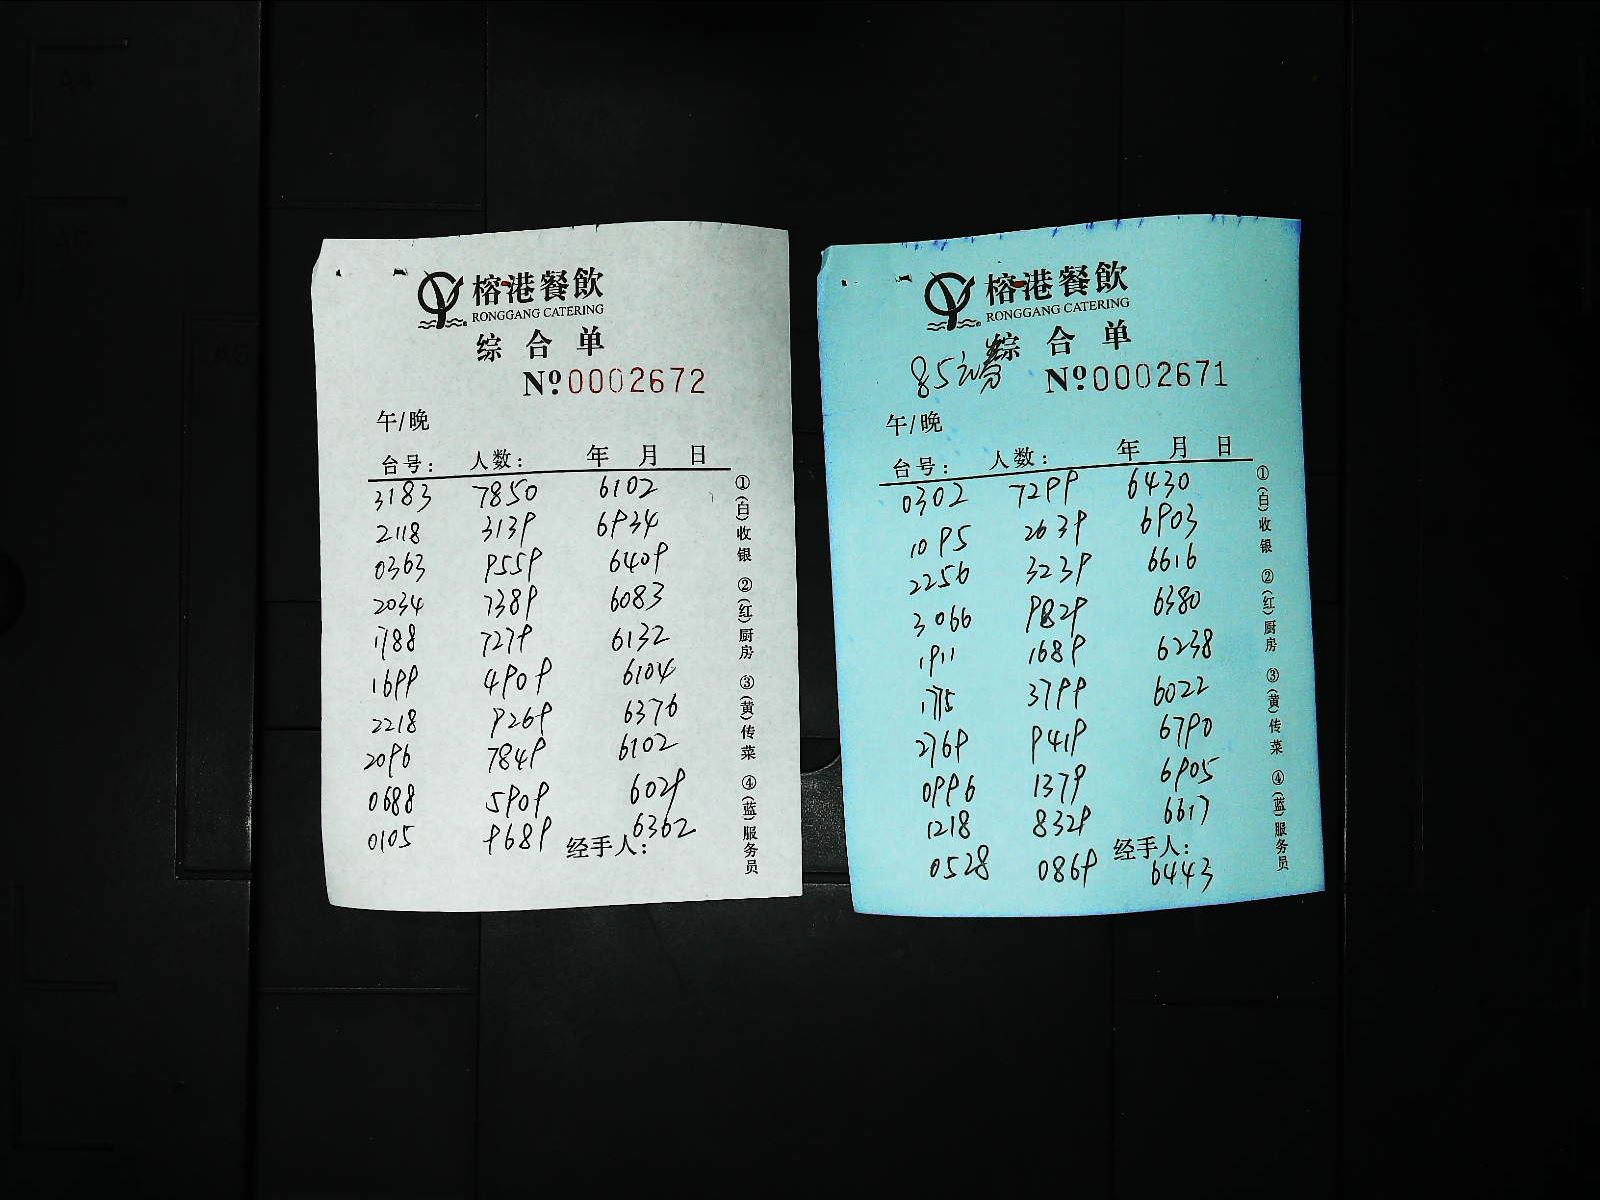 榕港餐飲
RONGGANG CATERING
综合单
№0002672
午/晚
台号: 人数: 年 月 日
3183 7850 6102
2118 3139 6934
0363 9559 6409
2034 7389 6083
1788 7279 6132
1699 4909 6104
2218 9269 6376
2096 7849 6102
0688 5909 6029
0105 9689 6362
经手人:
①(白)收银 ②(红)厨房 ③(黄)传菜 ④(蓝)服务员
榕港餐飲
RONGGANG CATERING
综合单
85元
№0002671
午/晚
台号: 人数: 年 月 日
0302 7299 6430
1095 2639 6903
2256 3239 6616
3066 9829 6380
1911 1689 6238
1715 3799 6022
2769 9419 6790
0996 1379 6905
1218 8329 6617
经手人:
0528 0869 6443
①(白)收银 ②(红)厨房 ③(黄)传菜 ④(蓝)服务员